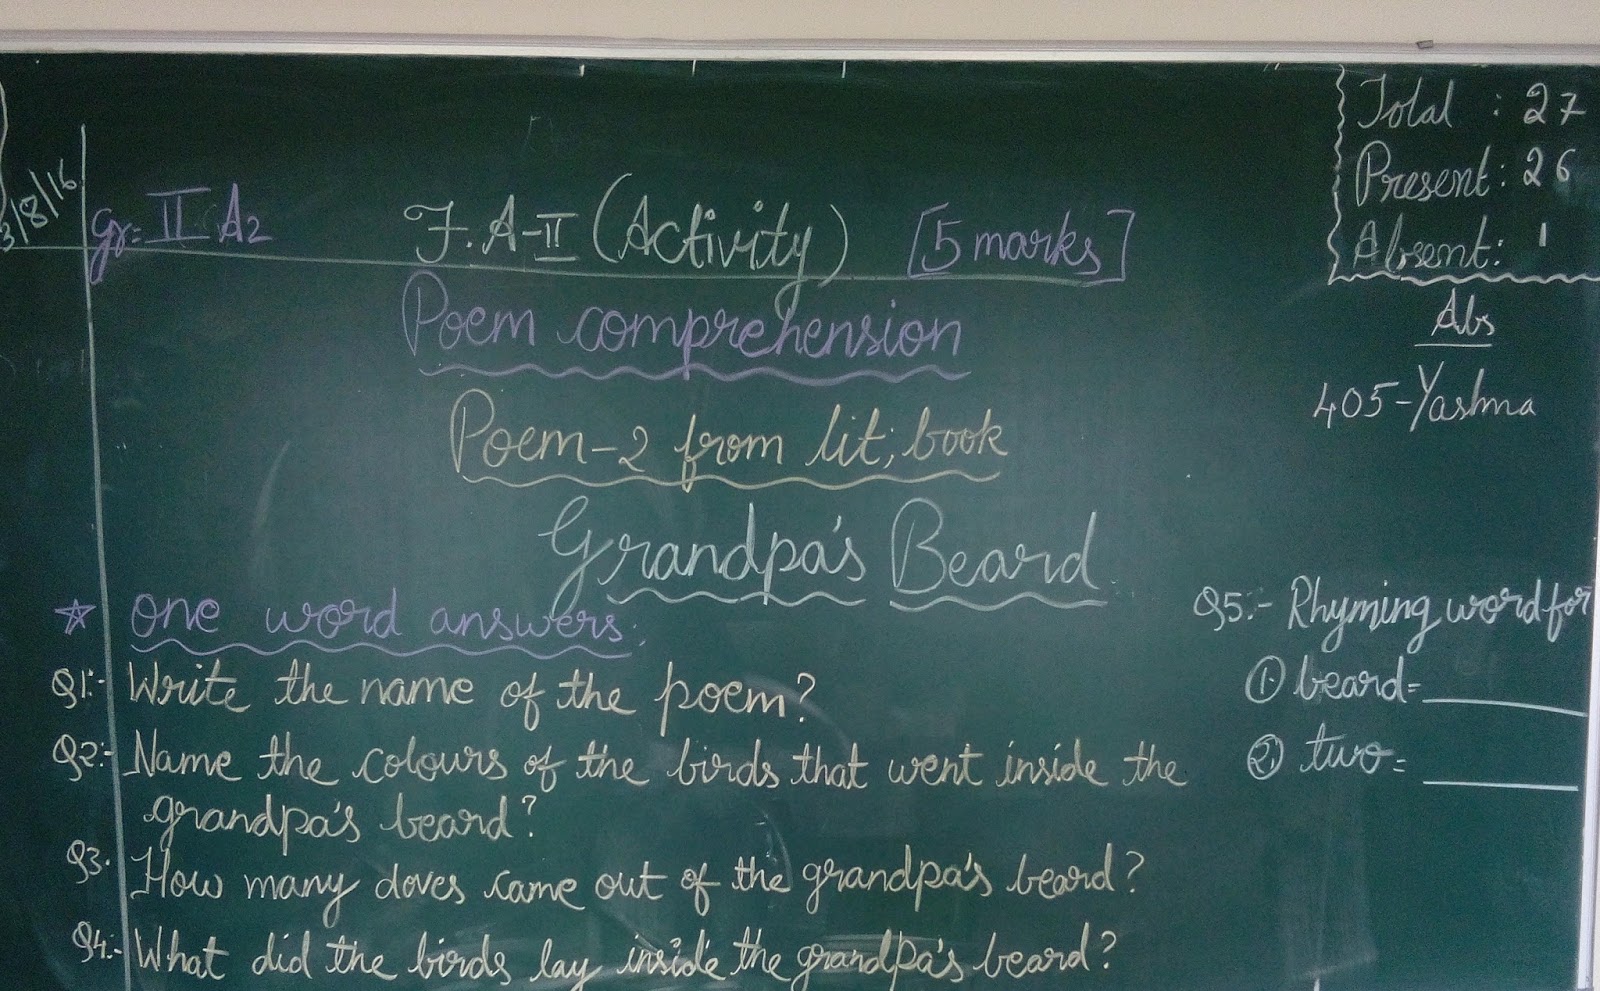 3/8/16
Gr:- II A2
F.A-II (Activity) [5 marks]
Total : 27
Present: 26
Absent: 1
Abs
405-Yashma
Poem comprehension
Poem-2 from lit; book
Grandpa's Beard
☆ one word answers:
Q1:- Write the name of the poem?
Q2:- Name the colours of the birds that went inside the
grandpa's beard?
Q3. How many doves came out of the grandpa's beard?
Q4:- What did the birds lay inside the grandpa's beard?
Q5:- Rhyming word for
① beard= ______
② two= ______